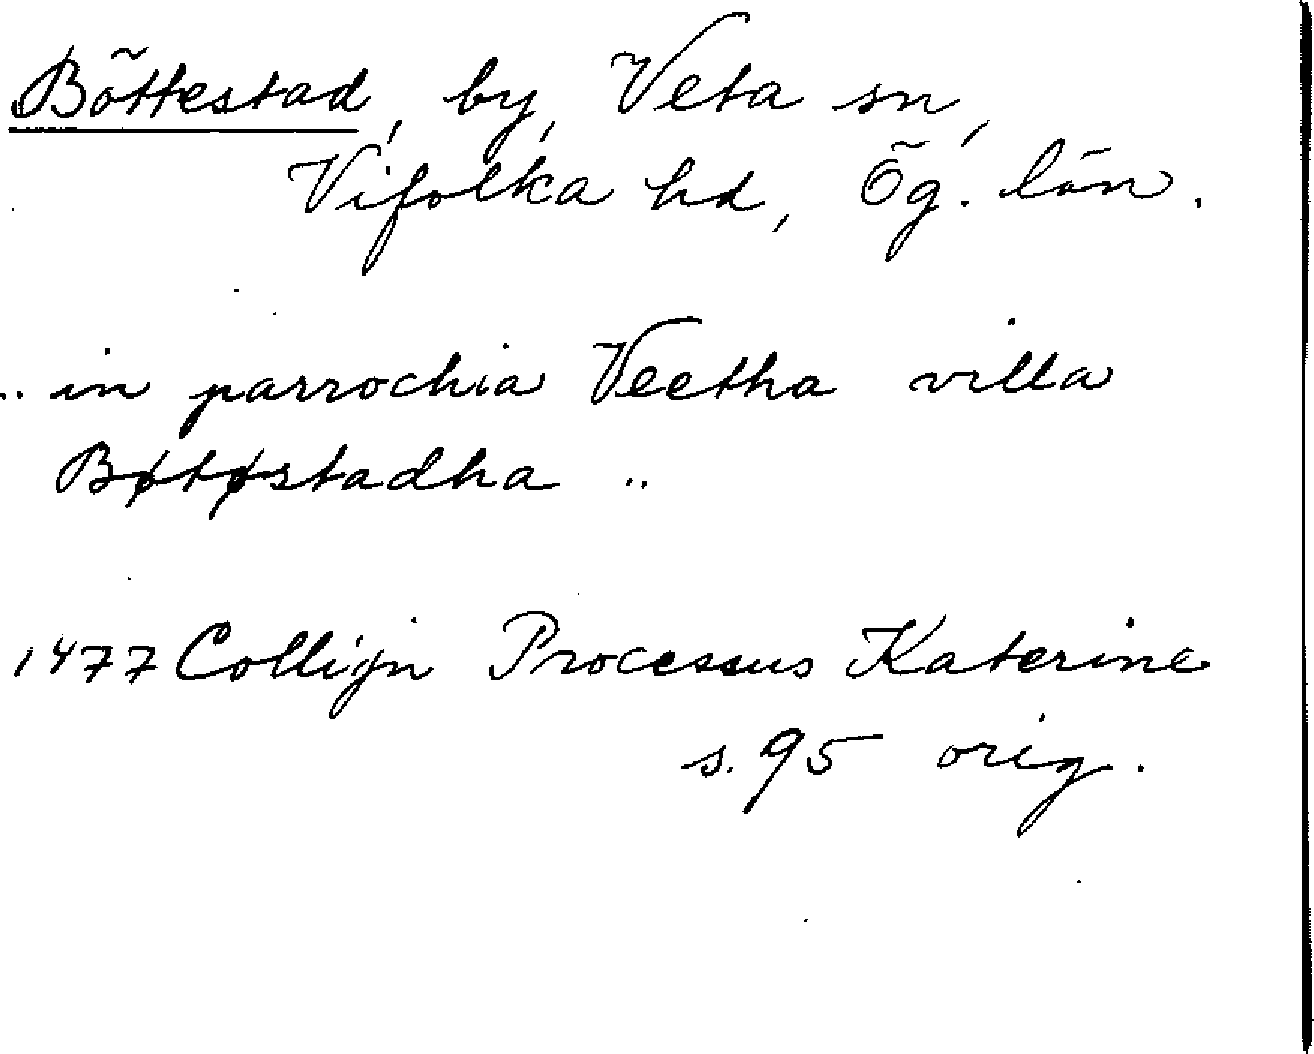 Böttestad, by, Veta sn,
Vifolka hd, Ög. län.
.. in parrochia Veetha villa
Bøtøstadha ..
1477 Collijn Processus Katerine
s. 95 orig.